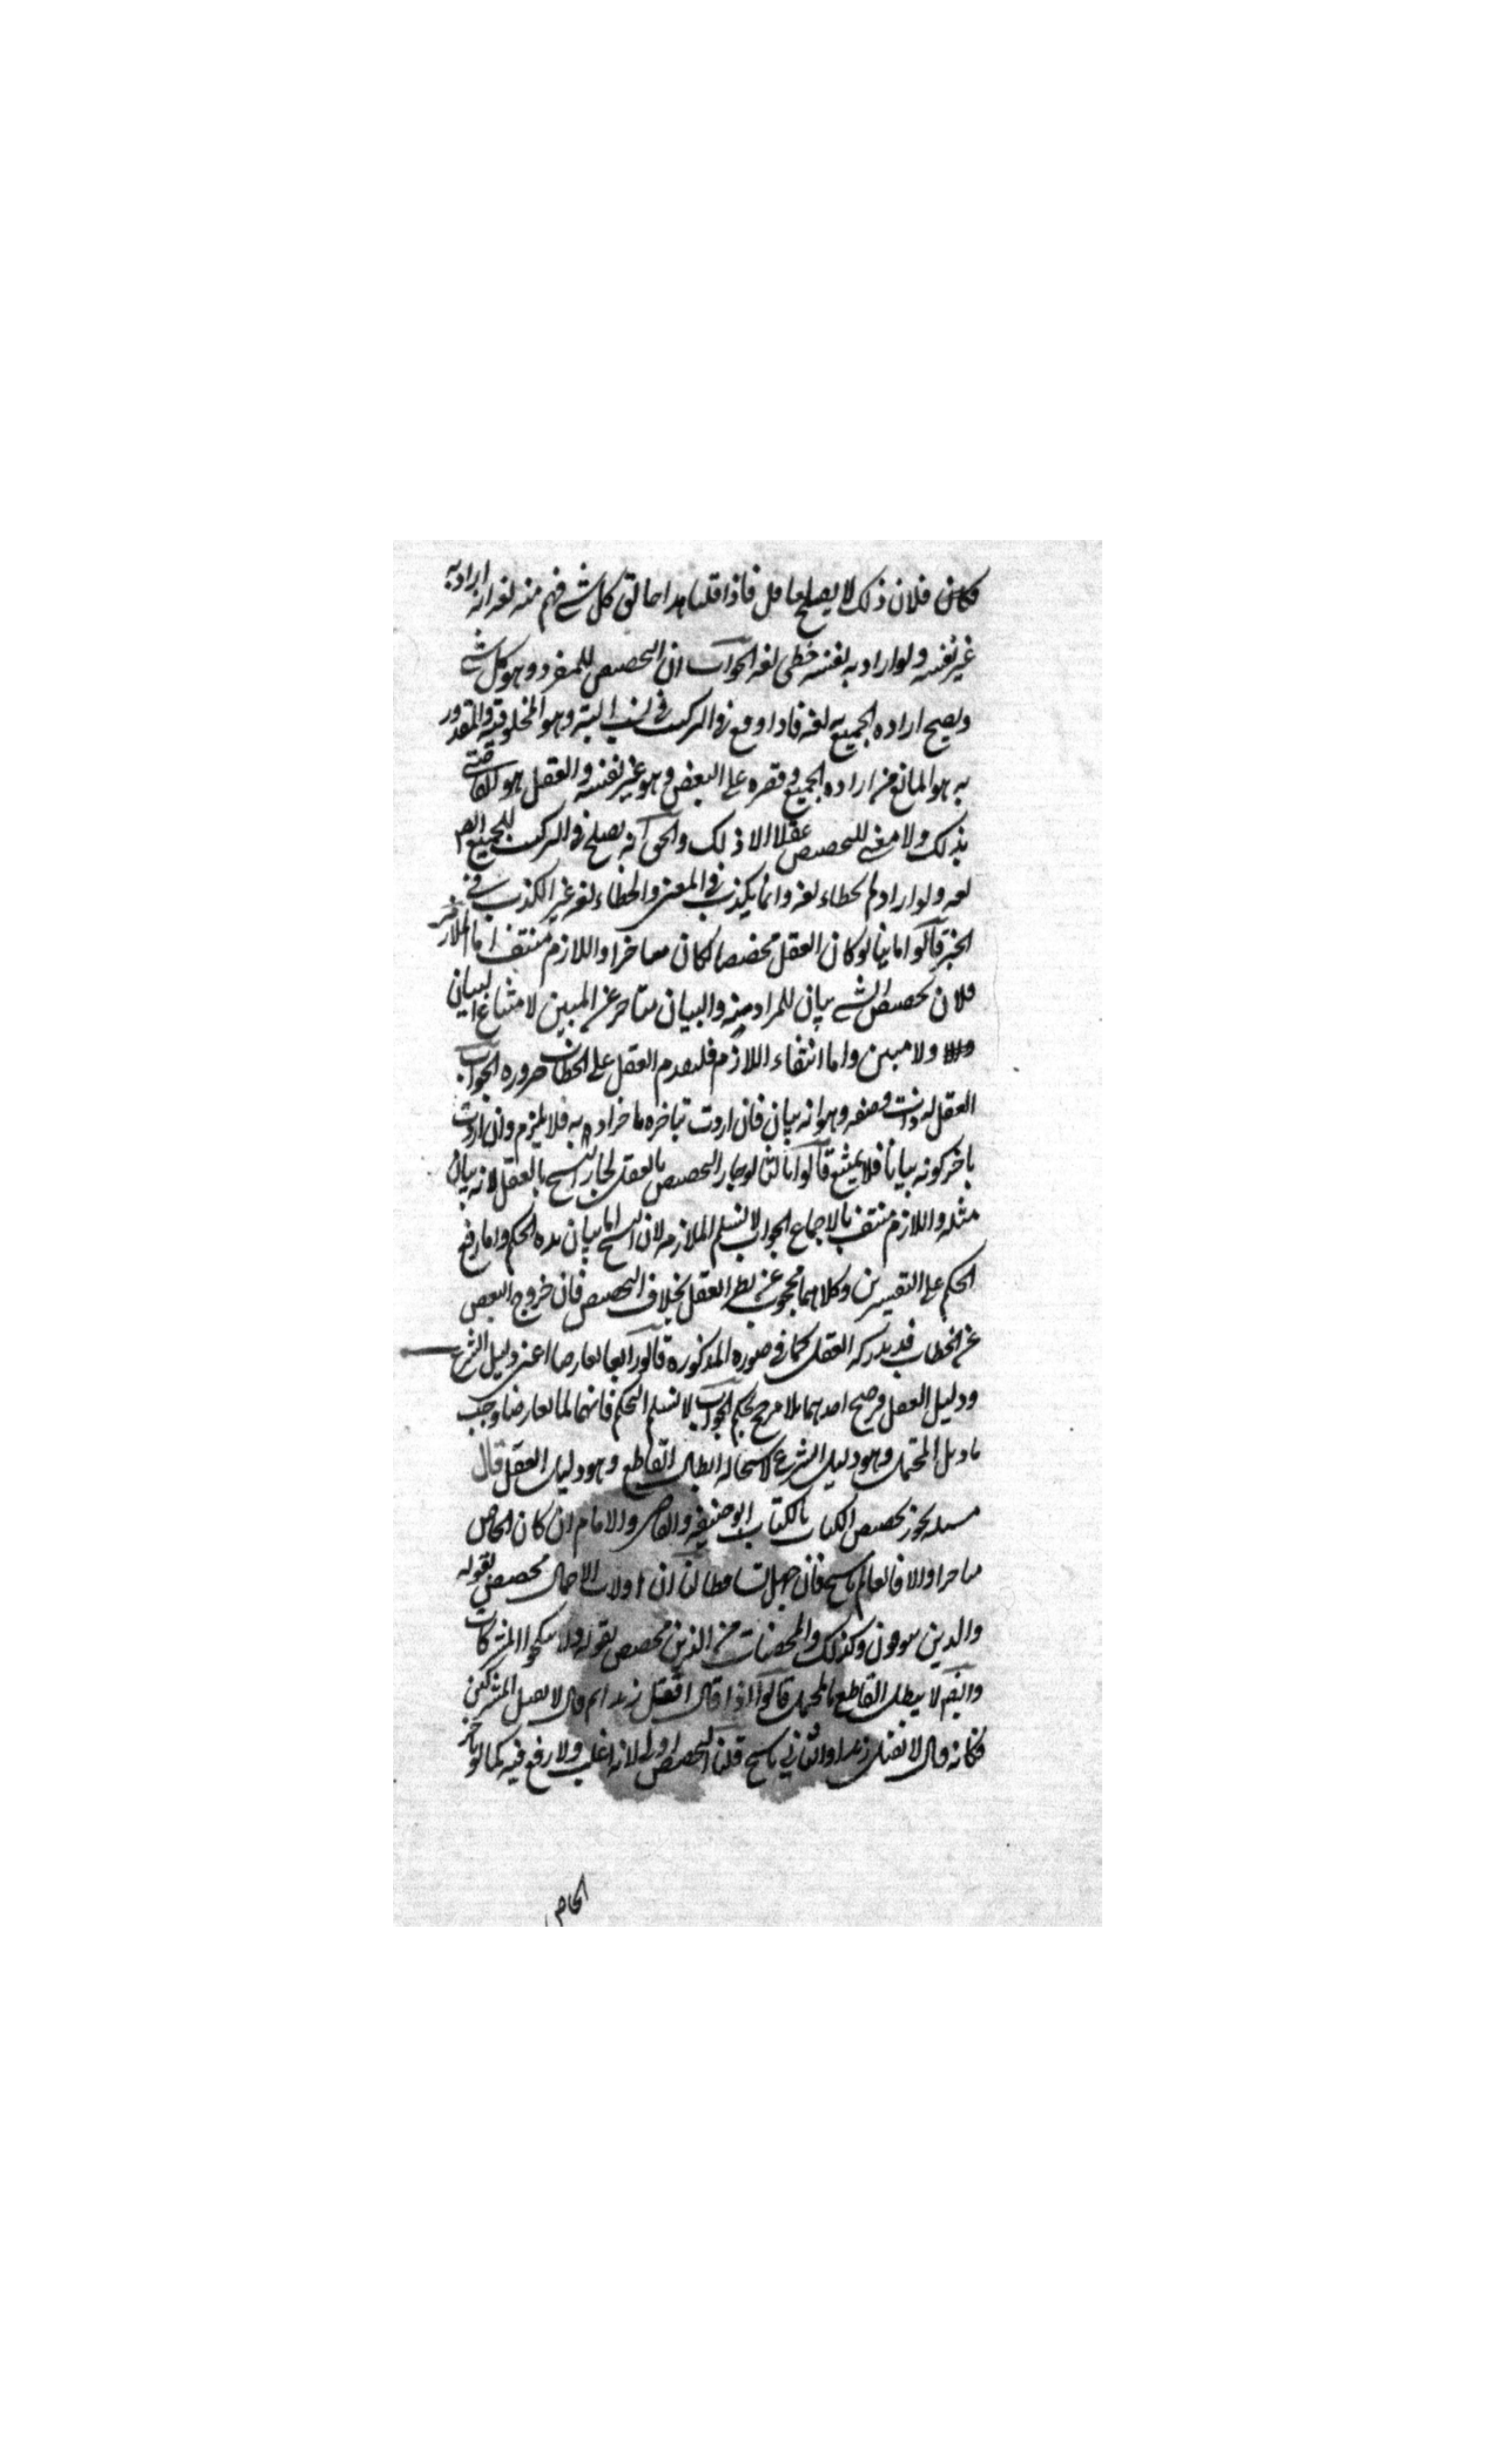 فكان فلان ذلك لا يصلح عاقل فاذا قلنا هذا خالق كل شئ فهم منه لغة انه اراد به
غير نفسه ولو اراد به نفسه خطى لغة الجواب ان التخصيص للمفرد وهو كل شئ
ويصح ارادة الجميع به لغة فاذا وقع في التركيب في نسب اليه وهو المخلوقية والمقدور
به هو المانع من ارادة الجميع وقصره على البعض وهو غير نفسه والعقل هو القاضي
بذلك ولا معنى للتخصيص عقلا الا ذلك والحق انه يصلح في التركيب للجميع ايضا
لغة ولو اراد لم يخطاء لغة وانما يكذب في المعنى والخطاء لغة غير الكذب في
الخبر قالوا ثانيا لو كان العقل مخصصا لكان متاخرا واللازم منتف اما الملازمة
فلان تخصيص الشئ بيان للمراد منه والبيان متاخر عن المبين لامتناع البيان
ولا مبين واما انتفاء اللازم فلتقدم العقل على الخطاب ضرورة الجواب
العقل له ذات وصفة وهو انه بيان فان اردت تاخره تاخر ذاته فلا يلزم وان اردت
تاخر كونه بيانا فلا يمتنع قالوا ثالثا لو جاز التخصيص بالعقل لجاز النسخ بالعقل لانه بيان
مثله واللازم منتف بالاجماع الجواب لا نسلم الملازمة لان النسخ اما بيان مدة الحكم واما رفع
الحكم على التفسيرين وكلاهما محجوب عن نظر العقل بخلاف التخصيص فان خروج البعض
عن الخطاب قد يدركه العقل كما في صورة المذكورة قالوا رابعا تعارضا اعنى دليل الشرع
ودليل العقل فترجيح احدهما بلا مرجح تحكم الجواب لا نسلم التحكم فانهما لما تعارضا وجب
تاويل المحتمل وهو دليل الشرع لاستحالة ابطال القاطع وهو دليل العقل قال
مسئلة يجوز تخصيص الكتاب بالكتاب ابو حنيفة والقاضي والامام ان كان الخاص
متاخرا والا فالعام ناسخ فان جهل تساقطا لنا ان اولات الاحمال مخصص لقوله
والذين يتوفون وكذلك والمحصنات من الذين مخصص لقوله ولا تنكحوا المشركات
وايضا لا يبطل القاطع بالمحتمل قالوا اذا قال اقتل زيدا ثم قال لا تقتل المشركين
فكانه قال لا تقتل زيدا والثاني ناسخ قلنا التخصيص اولى لانه اغلب ولا رفع فيه كما لو تاخر
الخاص